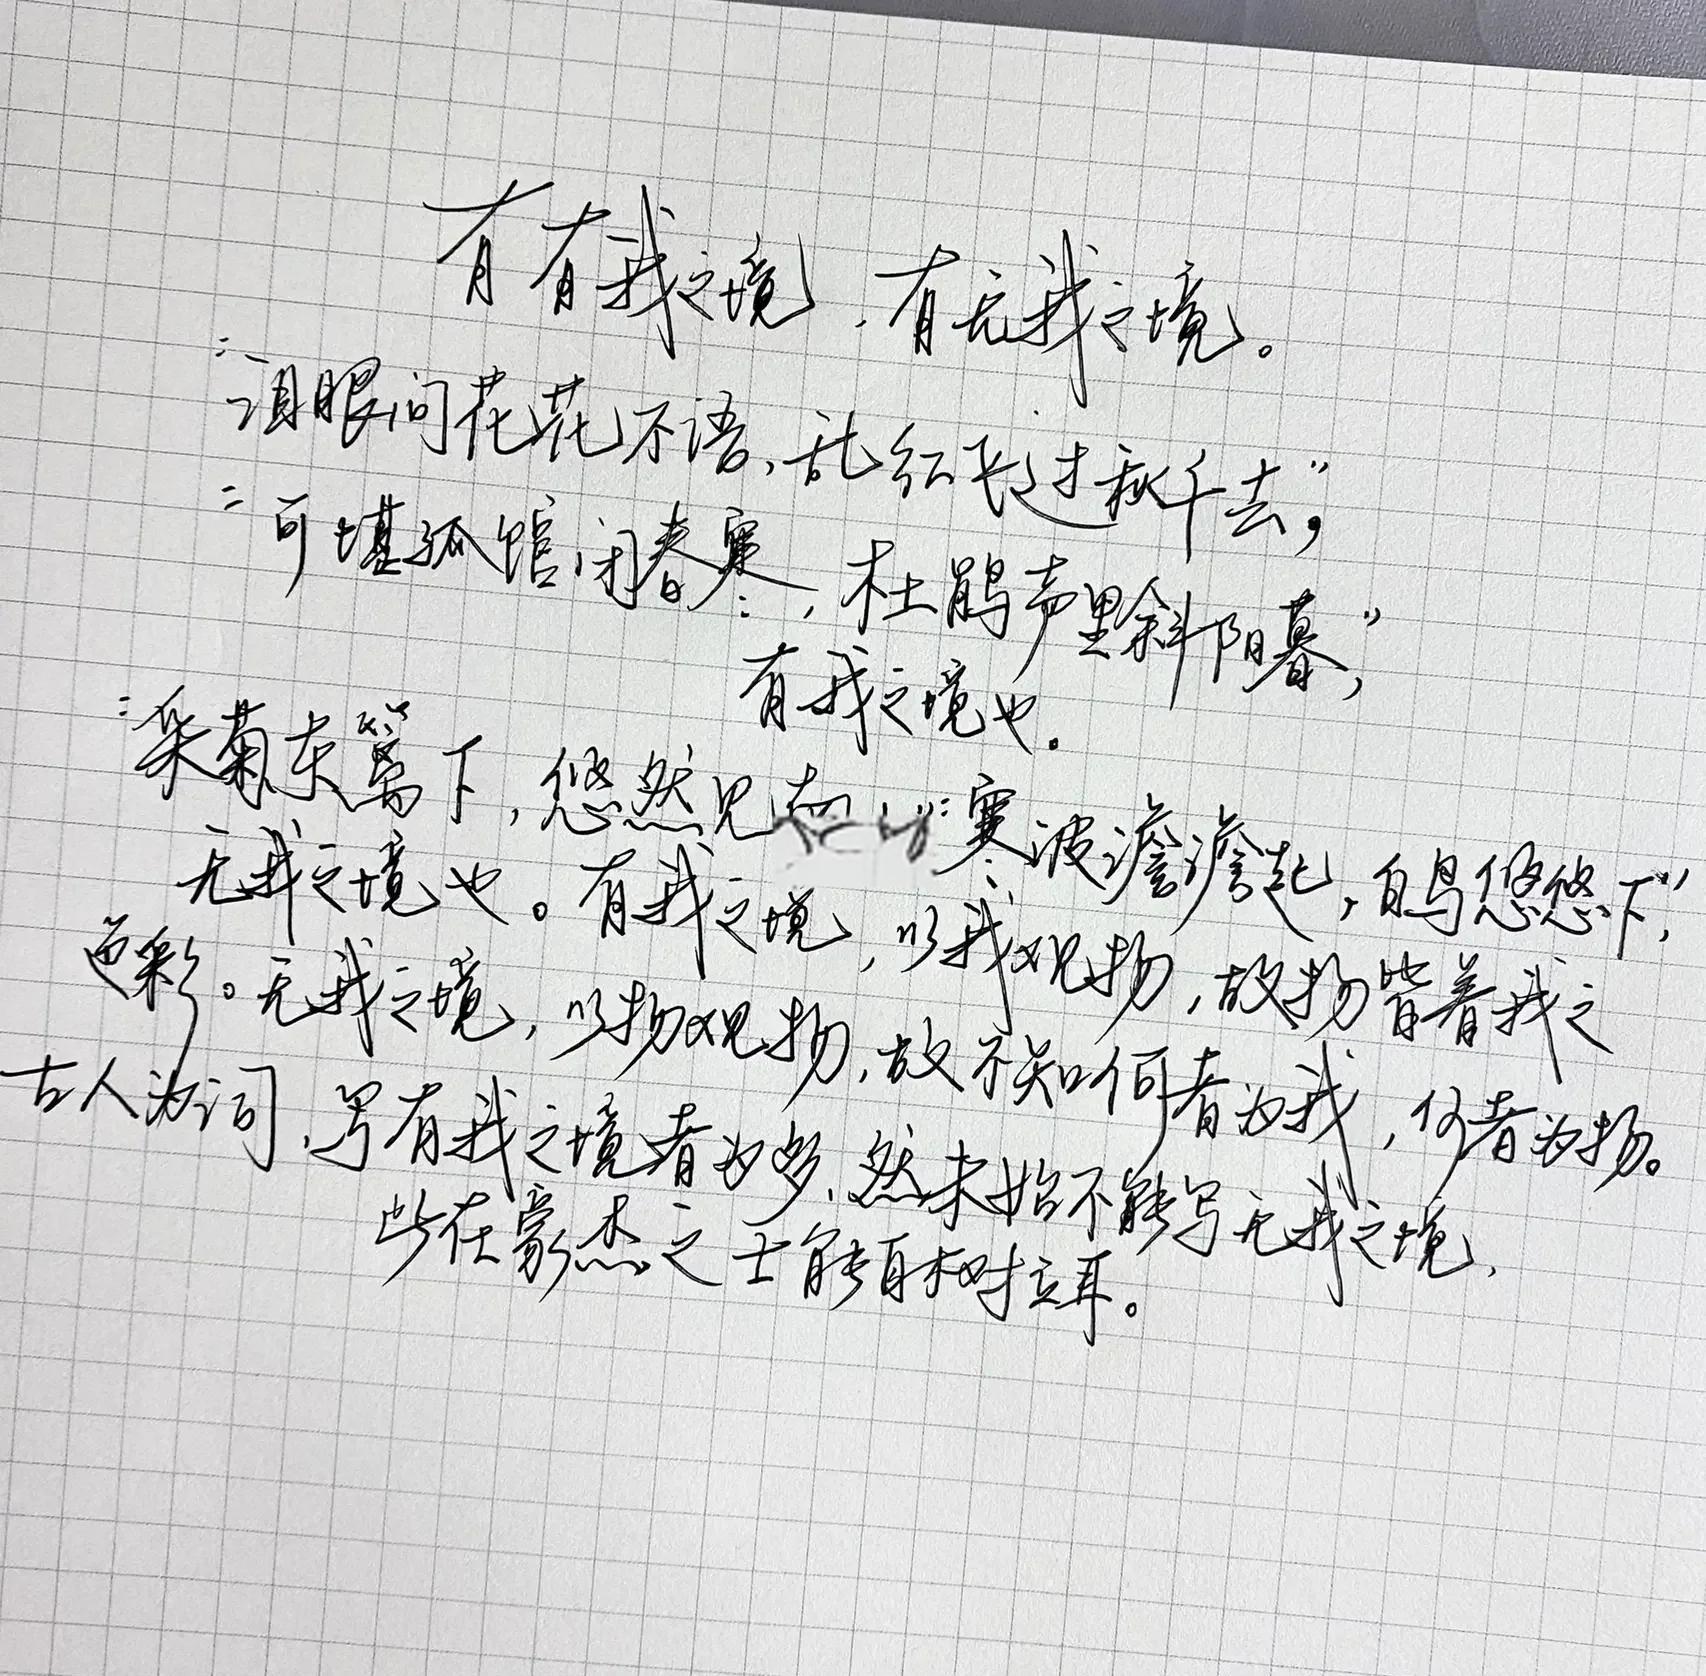 有有我之境，有无我之境。
“泪眼问花花不语，乱红飞过秋千去”，
“可堪孤馆闭春寒，杜鹃声里斜阳暮”，
有我之境也。
“采菊东篱下，悠然见”“寒波澹澹起，白鸟悠悠下”，
无我之境也。有我之境，以我观物，故物皆着我之
色彩。无我之境，以物观物，故不知何者为我，何者为物。
古人为词，写有我之境者为多，然未始不能写无我之境，
此在豪杰之士能自树立耳。